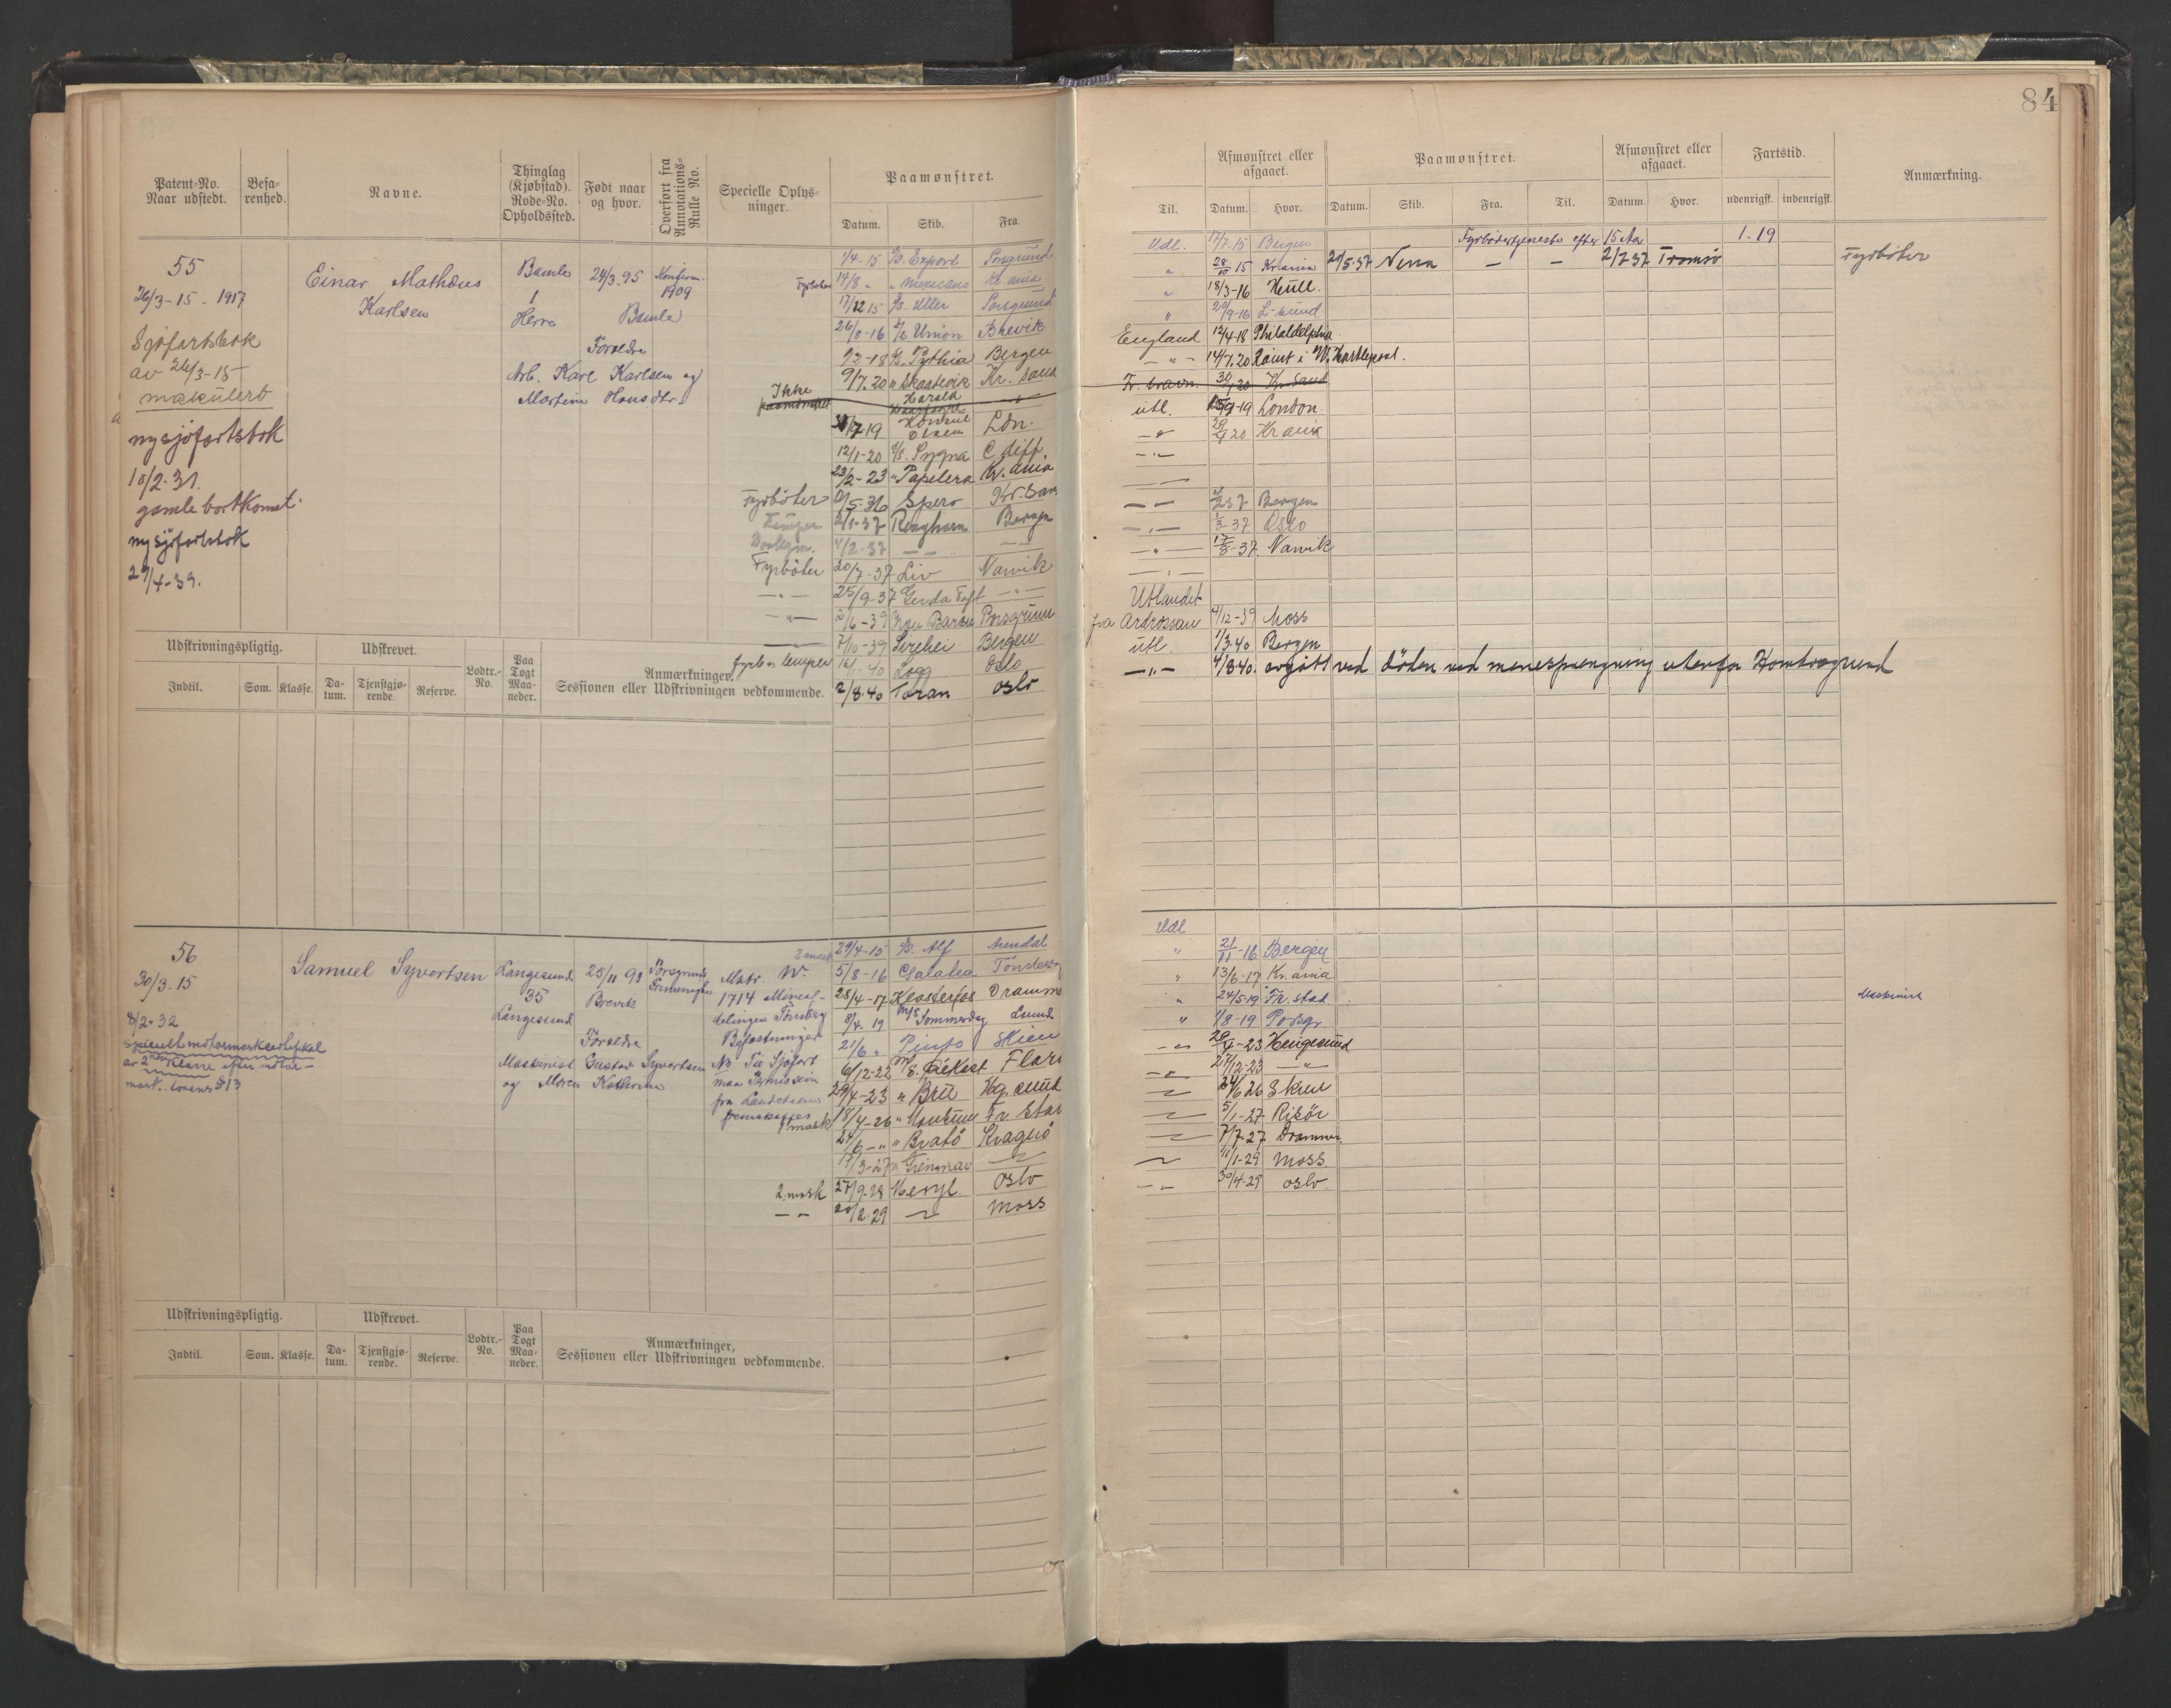 84
Patent-No. Naar udstedt.
Befa-renhed.
Navne.
Thinglag (Kjøbstad). Rode-No. Opholdssted.
Født naar og hvor.
Overført fra Annotations-Rulle No.
Specielle Oplys-ninger.
Paamønstret.
Datum. Skib. Fra.
Til.
Afmønstret eller afgaaet.
Datum. Hvor.
Paamønstret.
Datum. Skib. Fra. Til.
Afmønstret eller afgaaet.
Datum. Hvor.
Fartstid.
udenrigsk. indenrigsk.
Anmærkning.
55
26/3-15. 1917
Sjøfartsbok
av 26/3-15
makulert
ny sjøfartsbok
18/2-31.
gamle bortkomst
ny sjøfartsbok
29/4-39.
Einar Mathæus
Karlsen
Bamle
1
Herre
24/3.95
Bamle
Konfirm.
1909
Forældre
Arb. Karl Karlsen og
Martine Hansdtr.
Fyrbøter
Ikke
paamønstret
Fyrbøter
Lemper
Donkeym.
Fyrbøter
—"—
—"—
fyrb. lemper
1/4-15 S/S. Export Porsgrund
14/8 " " Mexicano Kr.ania
17/12 15 S/S. Uller Porsgrund
26/8-16 S/S Union Brevik
1/2-18 S/S. Pythia Bergen
9/7.20 " Skastevik Kr. sand
Harald
Haarfagre
7-19 Konsul Olsen Ldn.
12/1-20 S/S. Sygna C diff.
23/2-23 " Papelera Kr. ania
5-36 Spero Kr. San
2/1-37 Ringhorn Bergen
4/2-37 — — — —
20/7-37 Liv Narvik
25/9-37 Gerda Toft —"—
2/6-39 Porsgrunn
7/10-39 Sirehei Bergen
16/1-40 Logg Oslo
2/8-40 Toran oslo
Udl. 17/7.15 Bergen
" 28/10 15 Kr.ania
" 18/3-16 Hull.
" 29/9-16 L-sund
England 12/4-18 Philadelphia
—"— 14/7.20 Rømt i W. Hartlepool.
Fr. havn. 30/ 20 Kr. sand
utl. 15/9-19 London.
—"— 29/4 20 Kr ania
—"—
—"—
—"— 37 Bergen
—"— 1/3-37 Oslo
—"— 17/8-37 Narvik
—"—
Utlandet
fra Ardrossan 4/12-39 Moss
utl. 1/3.40 Bergen
—"— 4/8-40. avgått ved døden ved minesprengning utenfor Homborgrund
Fyrbødertjeneste efter 15 Aar 1.19
21/5-37 Nerra — — 2/7 37 Tromsø
Fyrbøter
Udskrivningspligtig.
Indtil. Som. Klasse.
Udskrevet.
Da-tum. Tjenstgjø-rende. Reserve.
Lodtr.-No.
Paa Togt Maa-neder.
Anmærkninger, Sessionen eller Udskrivningen vedkommende.
56
30/3.15
8/2-32
Specielt motormask certifikat
av 2nen klasse efter motor-
mask. lovens § 13
Samuel Syvertsen
Langesund
35
Langesund
28/11 91
Brevik
Porsgrunds
Forældre
Maskinist Gustav Syvertsen
og Maren Kathrine
Matr. Nr.
1714 Mineaf-
delingen Tønsberg
Befæstninger
NB Til Sjøfart
maa Permission
fra Landetaten
fremskaffes
2 mask
1 mask
2 mask
— " —
29/4-15 S/S. Alf Arendal
5/8-16 Galatea Tønsberg
28/4-17 Klosterfos Dramme
8/4. 19 M/S Sommerdag Lsund
21/6 " Pinto Skien
6/12-22 M/S. Flor
29/4-23 " Bru Hg. sund
18/4-26 " Fr Stad
24/6-" " Bratø Kragerø
17/3-27 " Grenmar — " —
27/9-28 Meryl Oslo
20/2-29 — " — moss
Udl
" 21/11-16 Bergen
" 13/6-17 Kr. ania
" 24/5-19. Fr. stad
" 1/8-19 Porsgr.
—"— 26/4-23 Haugesund
—"— 27/12-23 —"—
—"— 24/6 26 Skien
—"— 5/1-27 Risör
—"— 7/7-27 Drammen
—"— 11/1-29 Moss
—"— 30/4-29 oslo.
Maskinist
Udskrivningspligtig.
Indtil. Som. Klasse.
Udskrevet.
Da-tum. Tjenstgjø-rende. Reserve.
Lodtr.-No.
Paa Togt Maa-neder.
Anmærkninger, Sessionen eller Udskrivningen vedkommende.